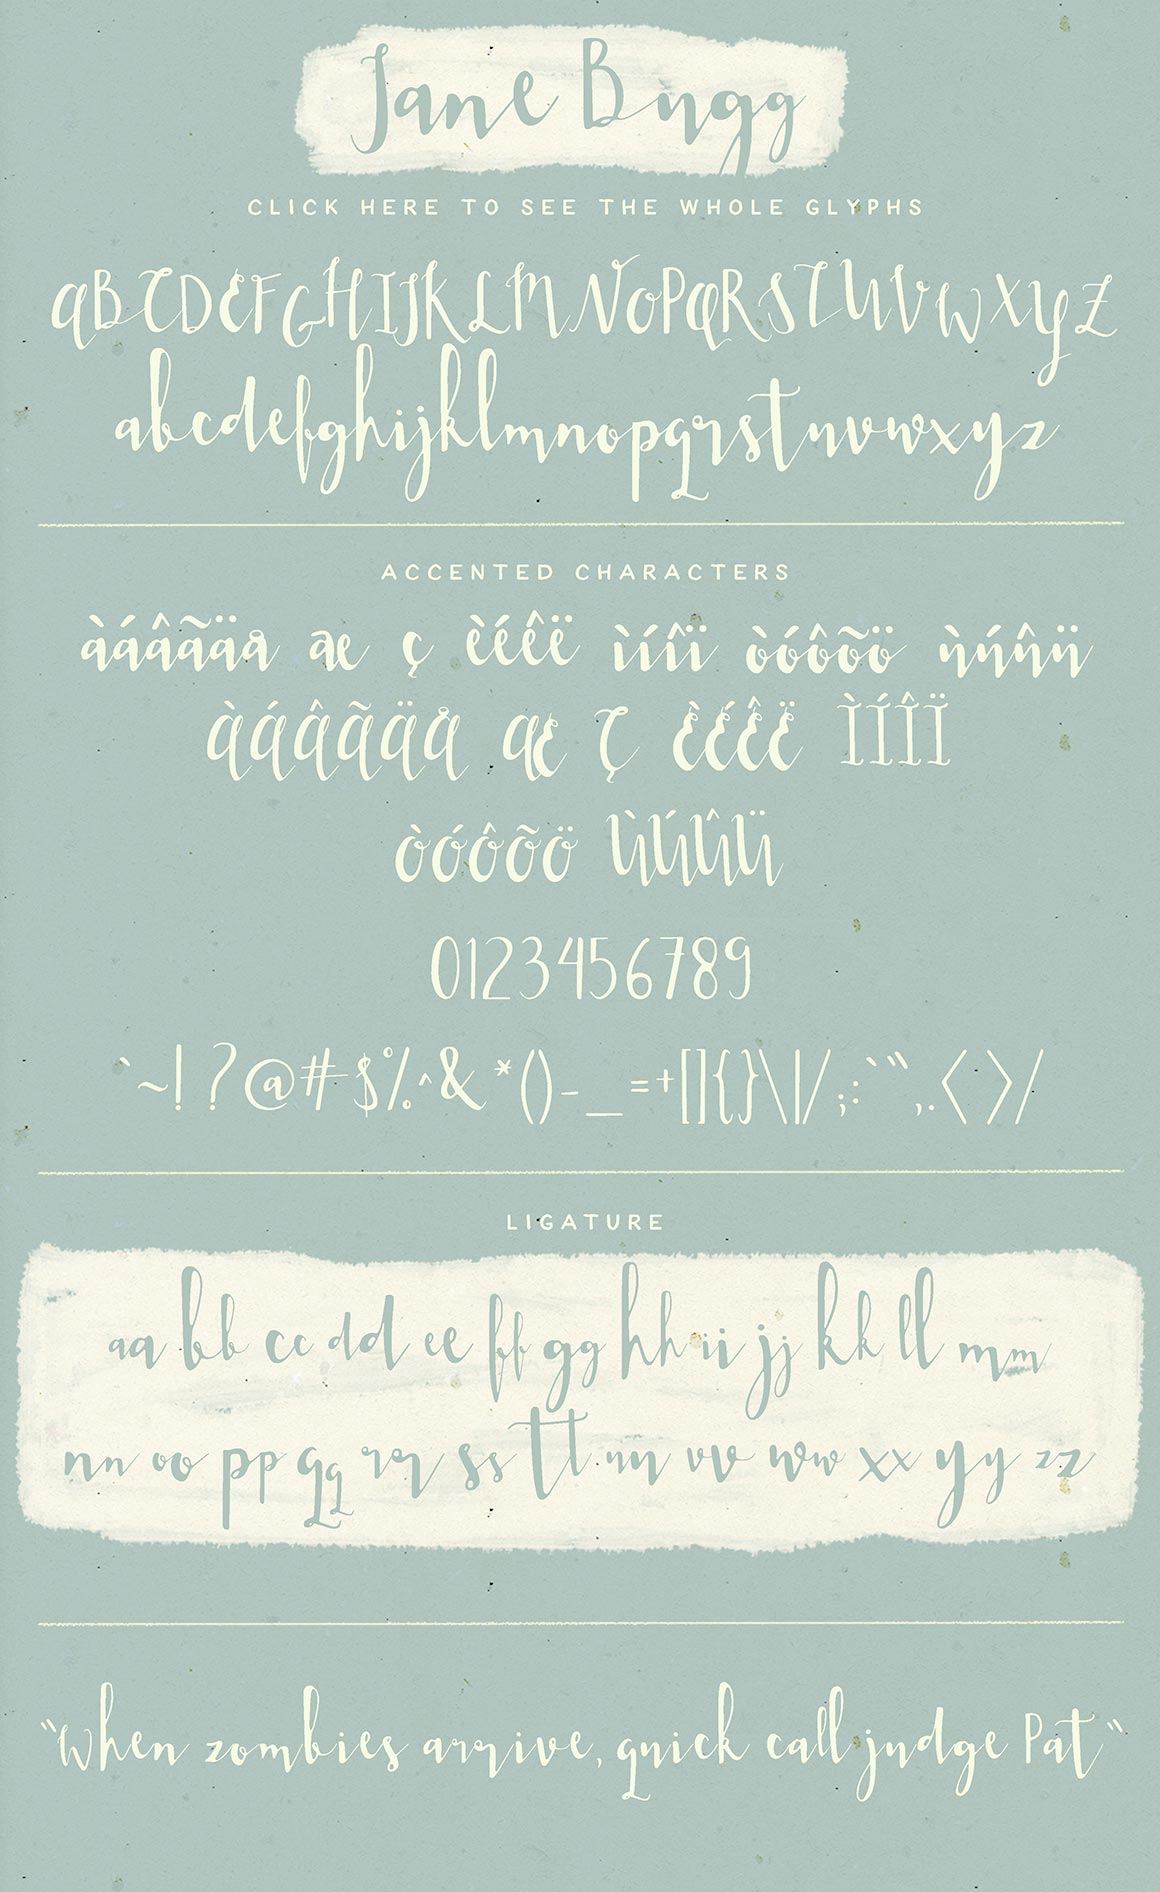 Jane Bugg
CLICK HERE TO SEE THE WHOLE GLYPHS
ABCDEFGHIJKLMNOPQRSTUVWXYZ
abcdefghijklmnopqrstuvwxyz
ACCENTED CHARACTERS
àáâãäå æ ç èéêë ìíîï òóôõö ùúûü
ÀÁÂÃÄÅ Æ Ç ÈÉÊË ÌÍÎÏ
ÒÓÔÕÖ ÙÚÛÜ
0123456789
`~!?@#$%^&*()-_=+[]{}\|/;:`",.<>/
LIGATURE
aa bb cc dd ee ff gg hh ii jj kk ll mm
nn oo pp qq rr ss tt uu vv ww xx yy zz
"When zombies arrive, quick call judge Pat"